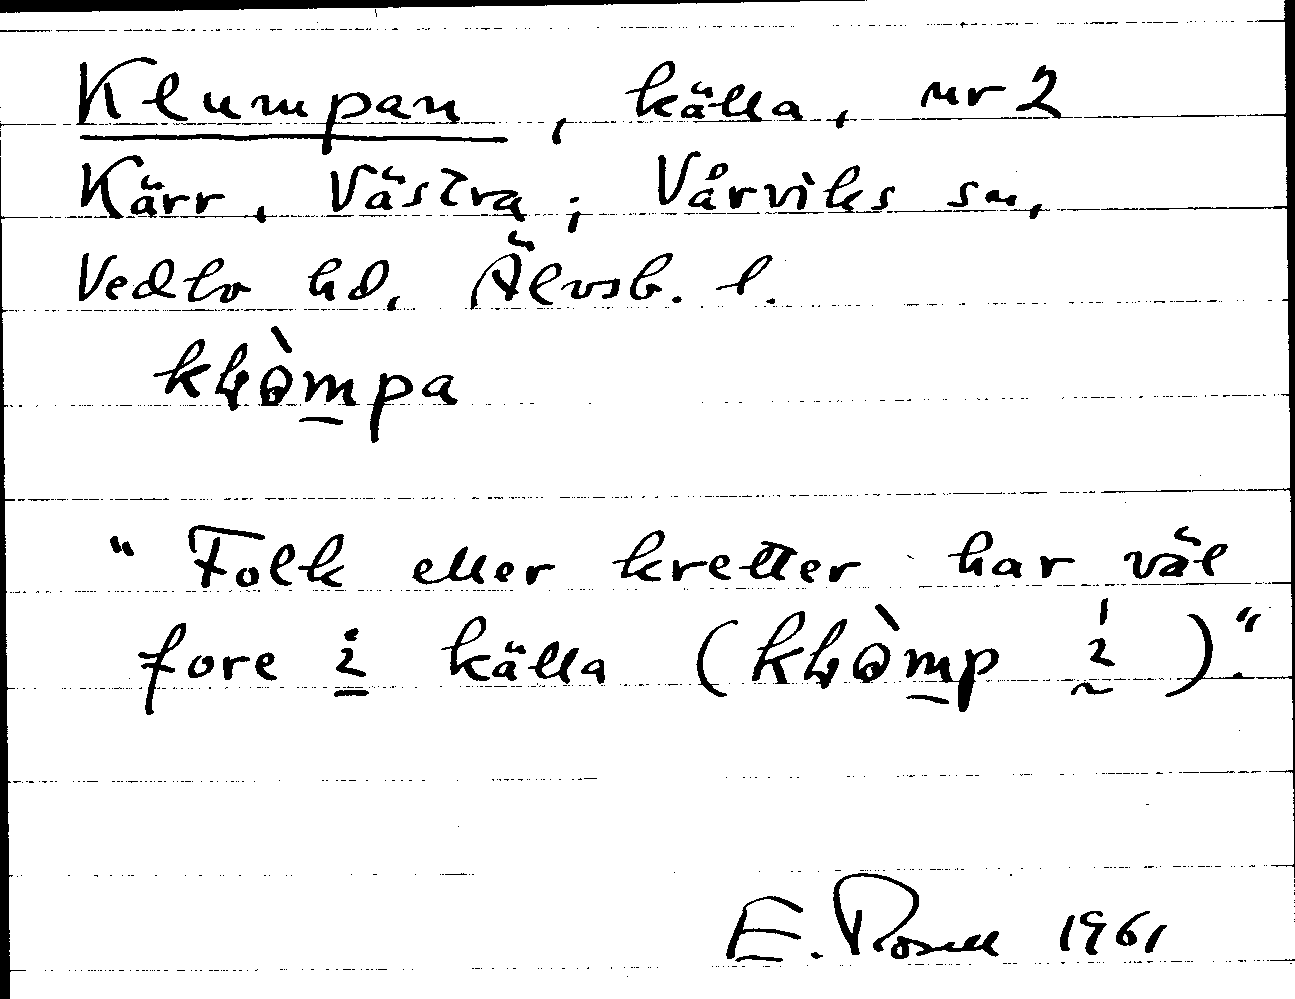 Klumpan, källa, nr 2
Kärr, Västra; Vårviks sn,
Vedbo hd, Älvsb. l.
kɫòmpa
"Folk eller kretter har väl
fore i källa (kɫòmp ı̍)."
E. Rosell 1961